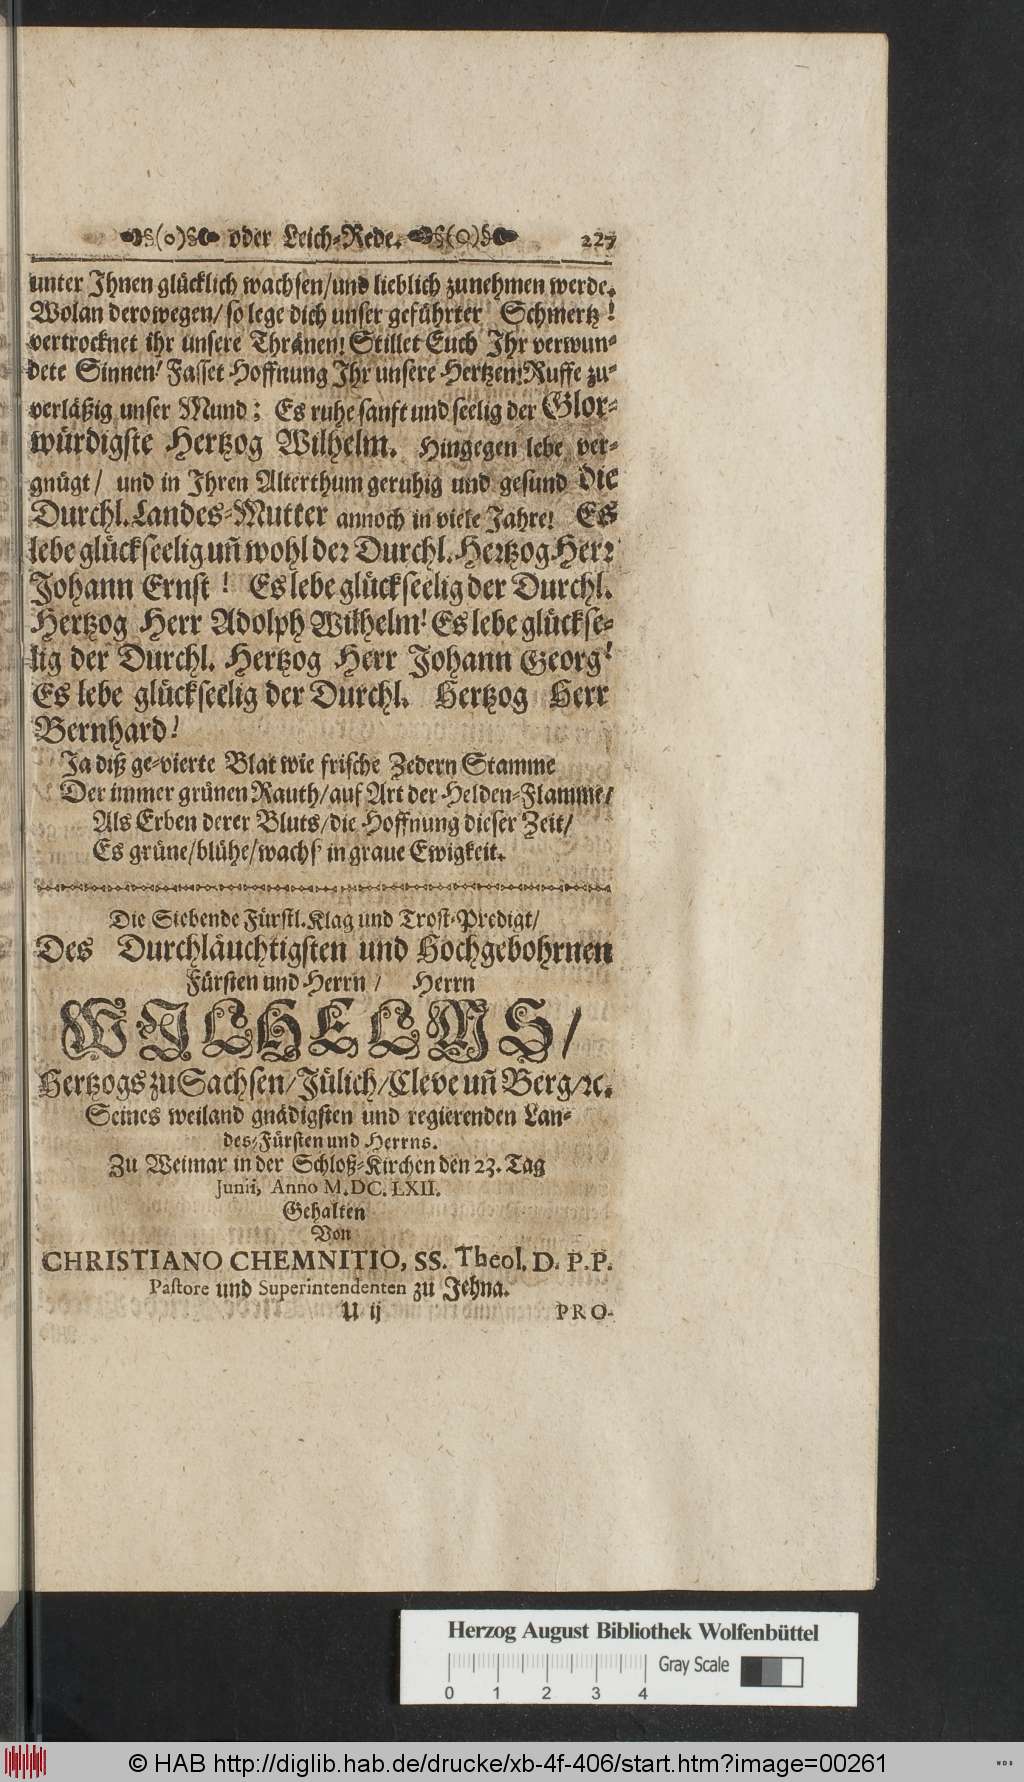 §(o)§ oder Leich-Rede. §(O)§ 227
unter Ihnen glücklich wachsen/und lieblich zunehmen werde.
Wolan derowegen/ so lege dich unser geführter Schmertz!
vertrocknet ihr unsere Thränen! Stillet Euch Ihr verwun-
dete Sinnen! Fasset Hoffnung Ihr unsere Hertzen! Ruffe zu-
verläßig unser Mund; Es ruhe sanft und seelig der Glor-
würdigste Hertzog Wilhelm. Hingegen lebe ver-
gnügt/ und in Ihren Alterthum geruhig und gesund die
Durchl. Landes-Mutter annoch in viele Jahre! Es
lebe glückseelig uñ wohl der Durchl. Hertzog Herr
Johann Ernst! Es lebe glückseelig der Durchl.
Hertzog Herr Adolph Wilhelm! Es lebe glückse-
lig der Durchl. Hertzog Herr Johann Georg!
Es lebe glückseelig der Durchl. Hertzog Herr
Bernhard!
Ja diß ge-vierte Blat wie frische Zedern Stamme
Der immer grünen Rauth/auf Art der Helden-Flamme/
Als Erben derer Bluts/die Hoffnung dieser Zeit/
Es grüne/blühe/wachs' in graue Ewigkeit.
Die Siebende Fürstl. Klag und Trost-Predigt/
Des Durchläuchtigsten und Hochgebohrnen
Fürsten und Herrn/ Herrn
WILHELMS/
Hertzogs zu Sachsen/Jülich/Cleve uñ Berg/ꝛc.
Seines weiland gnädigsten und regierenden Lan-
des-Fürsten und Herrns.
Zu Weimar in der Schloß-Kirchen den 23. Tag
Junii, Anno M.DC.LXII.
Gehalten
Von
CHRISTIANO CHEMNITIO, SS. Theol. D. P.P.
Pastore und Superintendenten zu Jehna.
U ij PRO-
Herzog August Bibliothek Wolfenbüttel
Gray Scale
0 1 2 3 4
© HAB http://diglib.hab.de/drucke/xb-4f-406/start.htm?image=00261